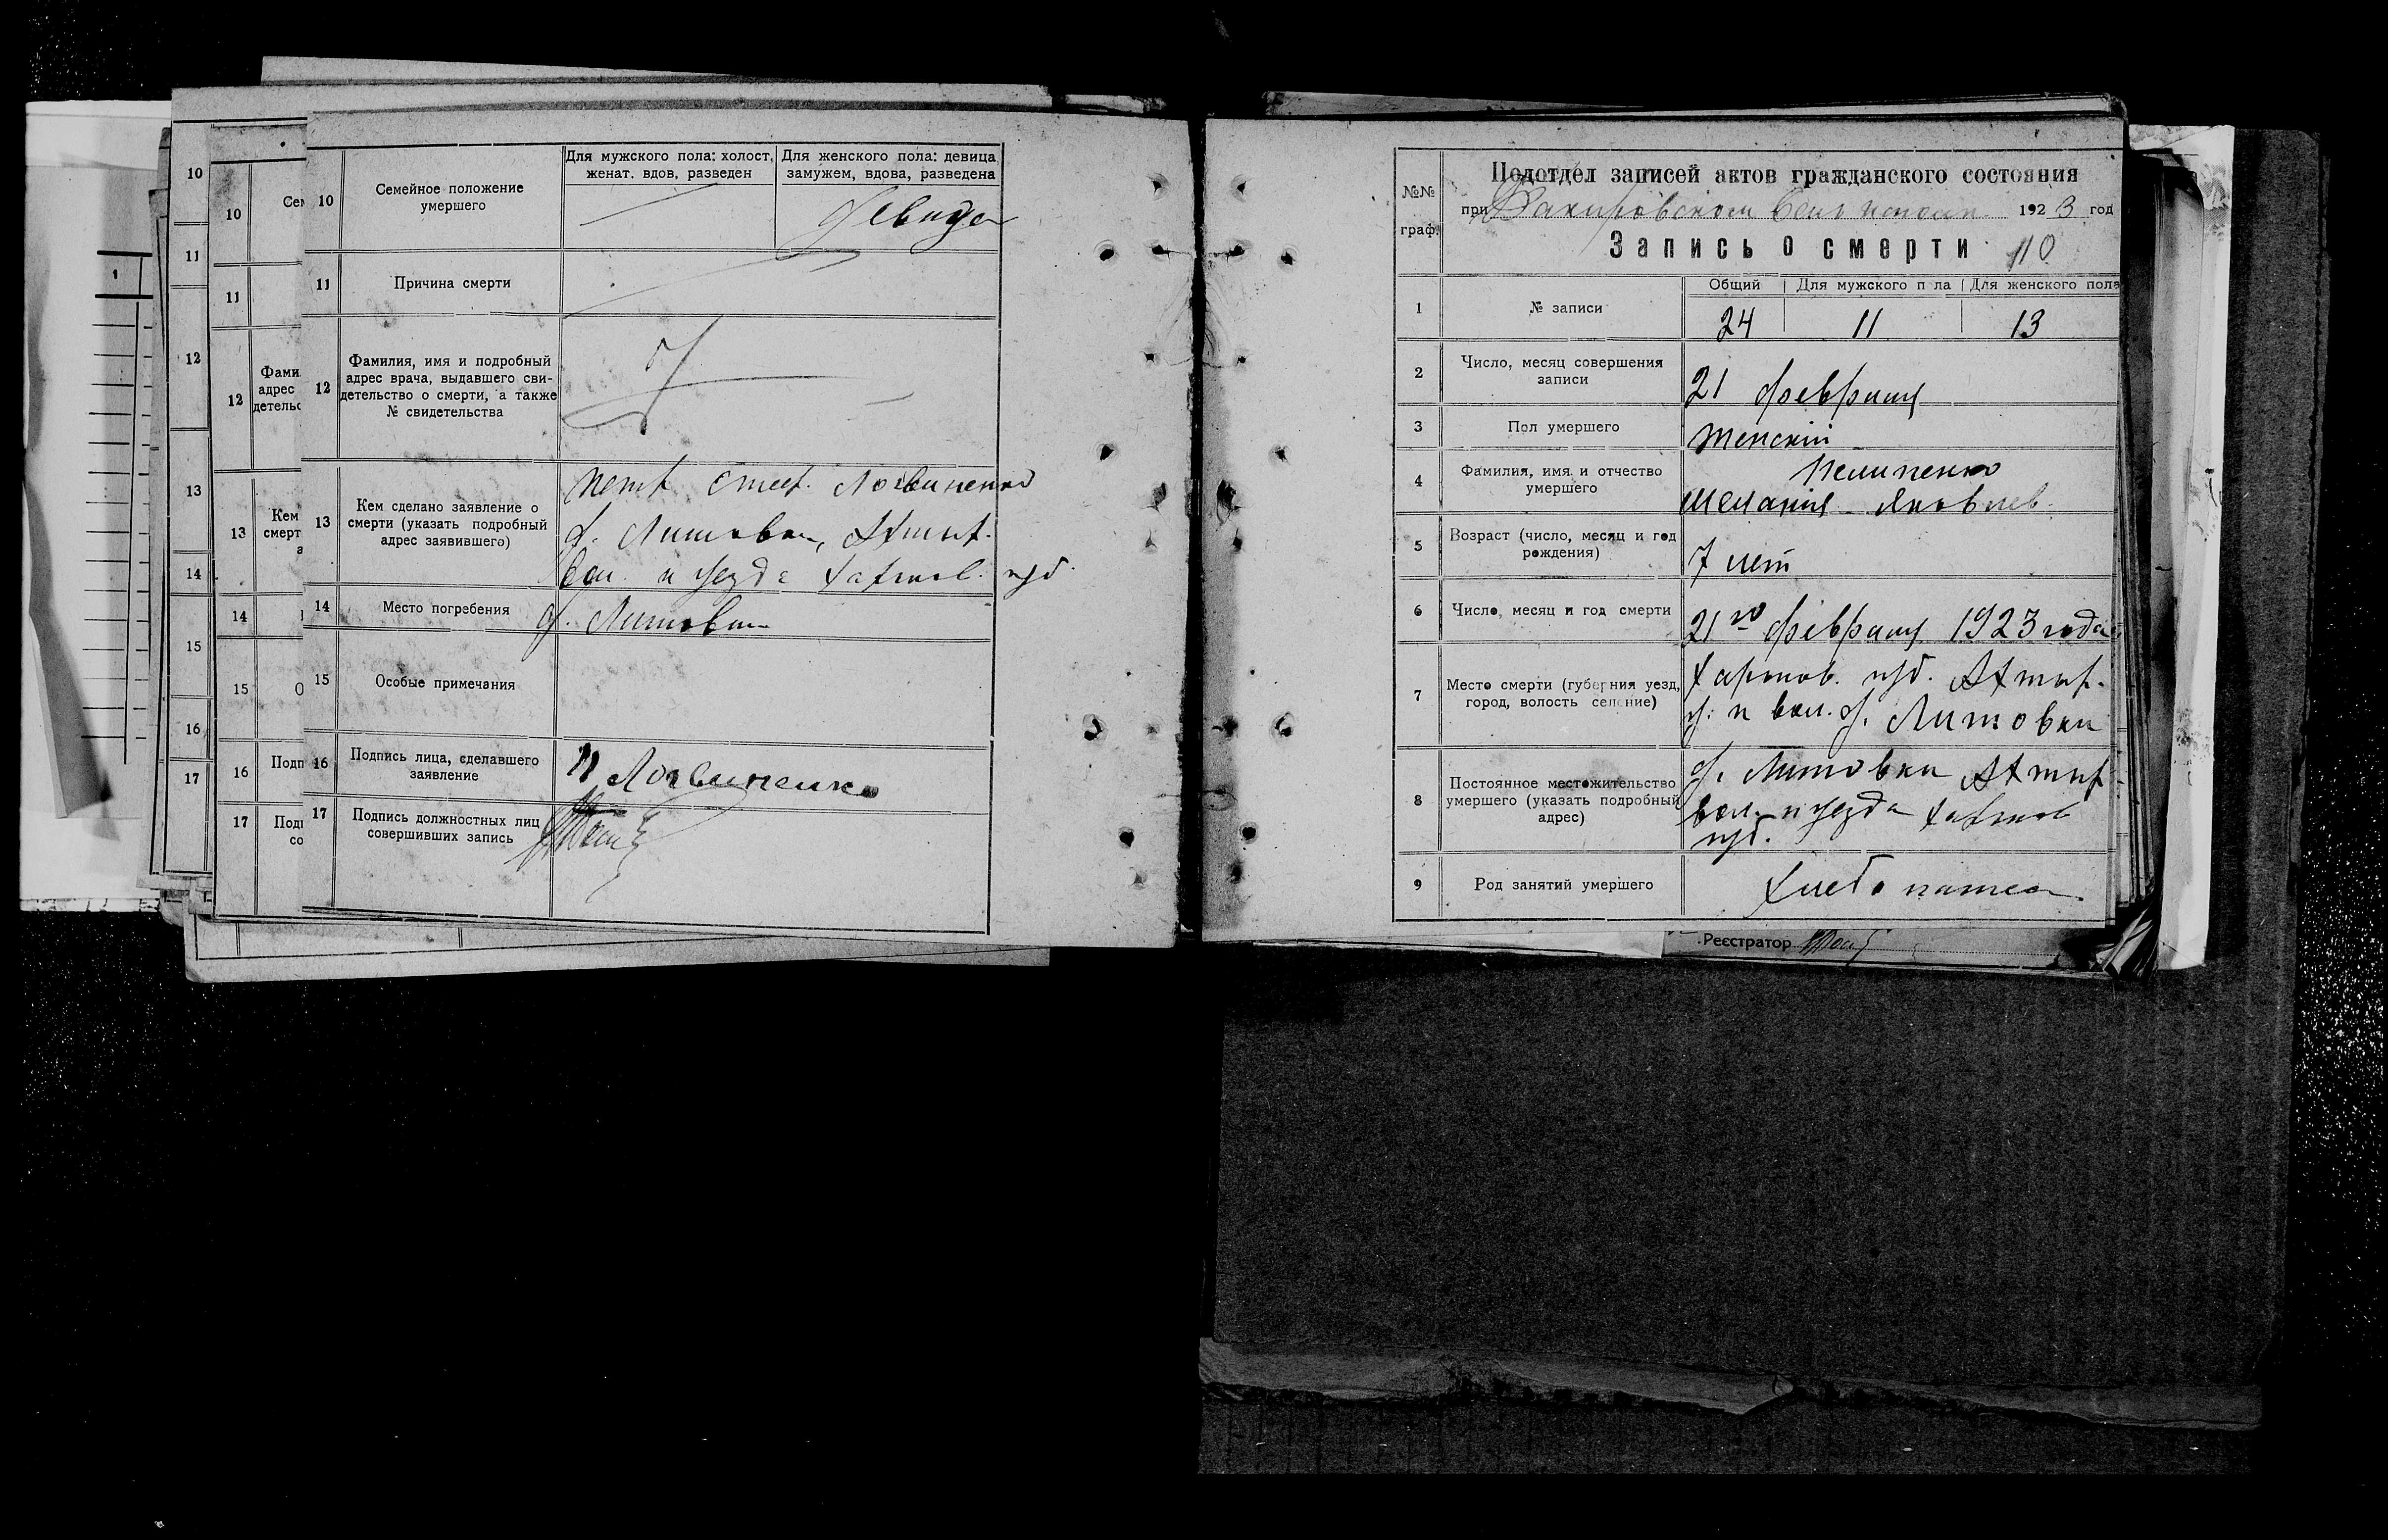 10
11
12
13
14
15
16
17
1
10
11
12
13
14
15
16
17
10
Семейное положение
умершего
Для мужского пола: холост,
женат. вдов, разведен
Для женского пола: девица
замужем, вдова, разведена
девица
11
Причина смерти
12
Фамилия, имя и подробный
адрес врача, выдавшего сви-
детельство о смерти, а также
№ свидетельства
13
Кем сделано заявление о
смерти (указать подробный
адрес заявившего)
Петр Стеф. Логвиненко
д. Литовки, Ахтыр.
вол. и уезда Харьков. губ.
14
Место погребения
д. Литовки
15
Особые примечания
16
Подпись лица, сделавшего
заявление
П Логвиненко
17
Подпись должностных лиц
совершивших запись
№№
граф.
Подотдел записей актов гражданского состояния
при 1923 год
Запись о смерти 110
1
№ записи
Общий
Для мужского п ла
Для женского пола
24
11
13
2
Число, месяц совершения
записи
21 февраля
3
Пол умершего
Женский
4
Фамилия, имя и отчество
умершего
Пелипенко
Мелания Яковлев.
5
Возраст (число, месяц и год
рождения)
7 лет
6
Число, месяц и год смерти
21го февраля 1923 года
7
Место смерти (губерния уезд,
город, волость селение)
Харьков. губ. Ахтыр.
у. и вол. д. Литовки
8
Постоянное местожительство
умершего (указать подробный
адрес)
д. Литовки Ахтыр.
вол. и уезда Харьков
губ.
9
Род занятий умершего
Хлебопашец
Реєстратор